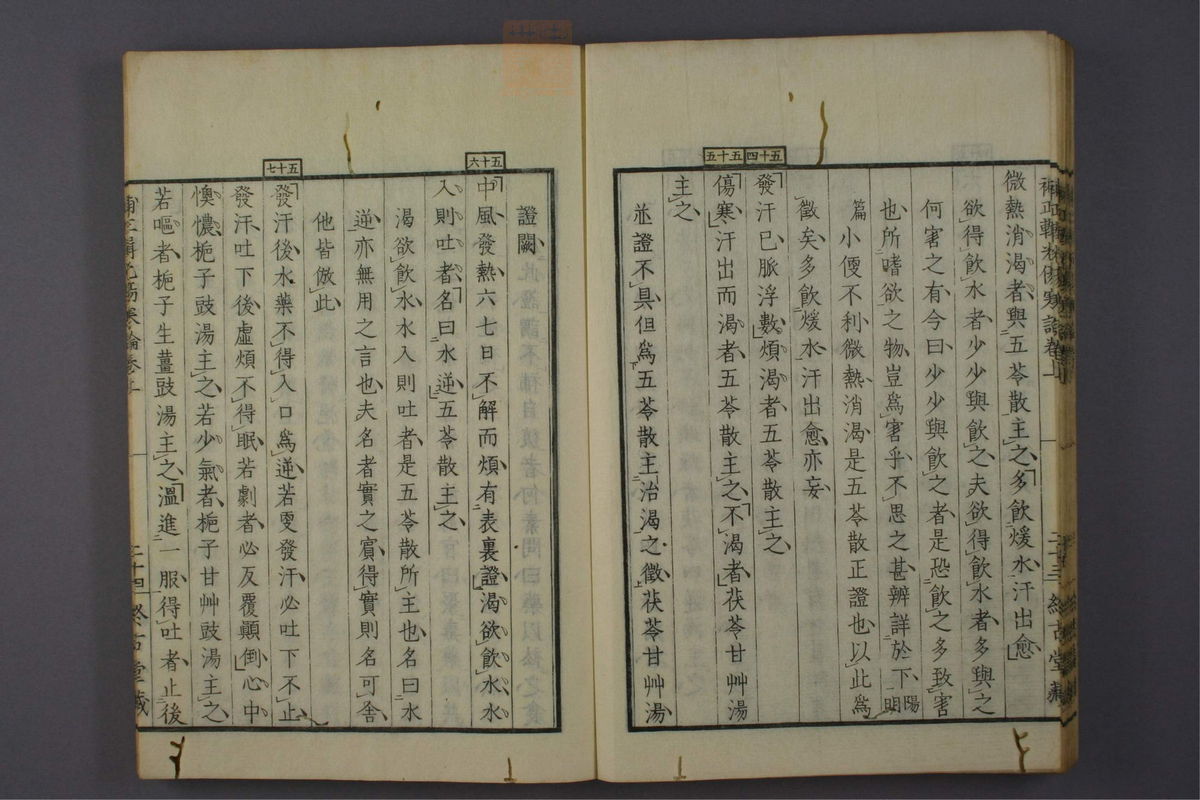 補正輯光傷寒論卷上 二十三 終古堂藏
微熱消渴者與五苓散主之多飲煖水汗出愈
欲得飲水者少少與飲之夫欲得飲水者多與之
何害之有今曰少少與飲之者是恐飲之多致害
也所嗜欲之物豈爲害乎不思之甚辨詳於下陽明
篇小便不利微熱消渴是五苓散正證也以此爲
徵矣多飲煖水汗出愈亦妄
五十四
發汗已脈浮數煩渴者五苓散主之
五十五
傷寒汗出而渴者五苓散主之不渴者茯苓甘艸湯
主之
並證不具但爲五苓散主治渴之徵茯苓甘艸湯
證闕
五十六
中風發熱六七日不解而煩有表裏證渴欲飲水水
入則吐者名曰水逆五苓散主之
渴欲飲水水入則吐者是五苓散所主也名曰水
逆亦無用之言也夫名者實之賓得實則名可舍
他皆倣此
五十七
發汗後水藥不得入口爲逆若更發汗必吐下不止
發汗吐下後虛煩不得眠若劇者必反覆顚倒心中
懊憹梔子豉湯主之若少氣者梔子甘艸豉湯主之
若嘔者梔子生薑豉湯主之溫進一服得吐者止後
補正輯光傷寒論卷上 二十四 終古堂藏